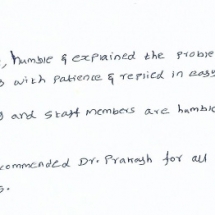 , humble & explained the proble
with patience & replied in easy
and staff members are humble
commended Dr. Prakash for all